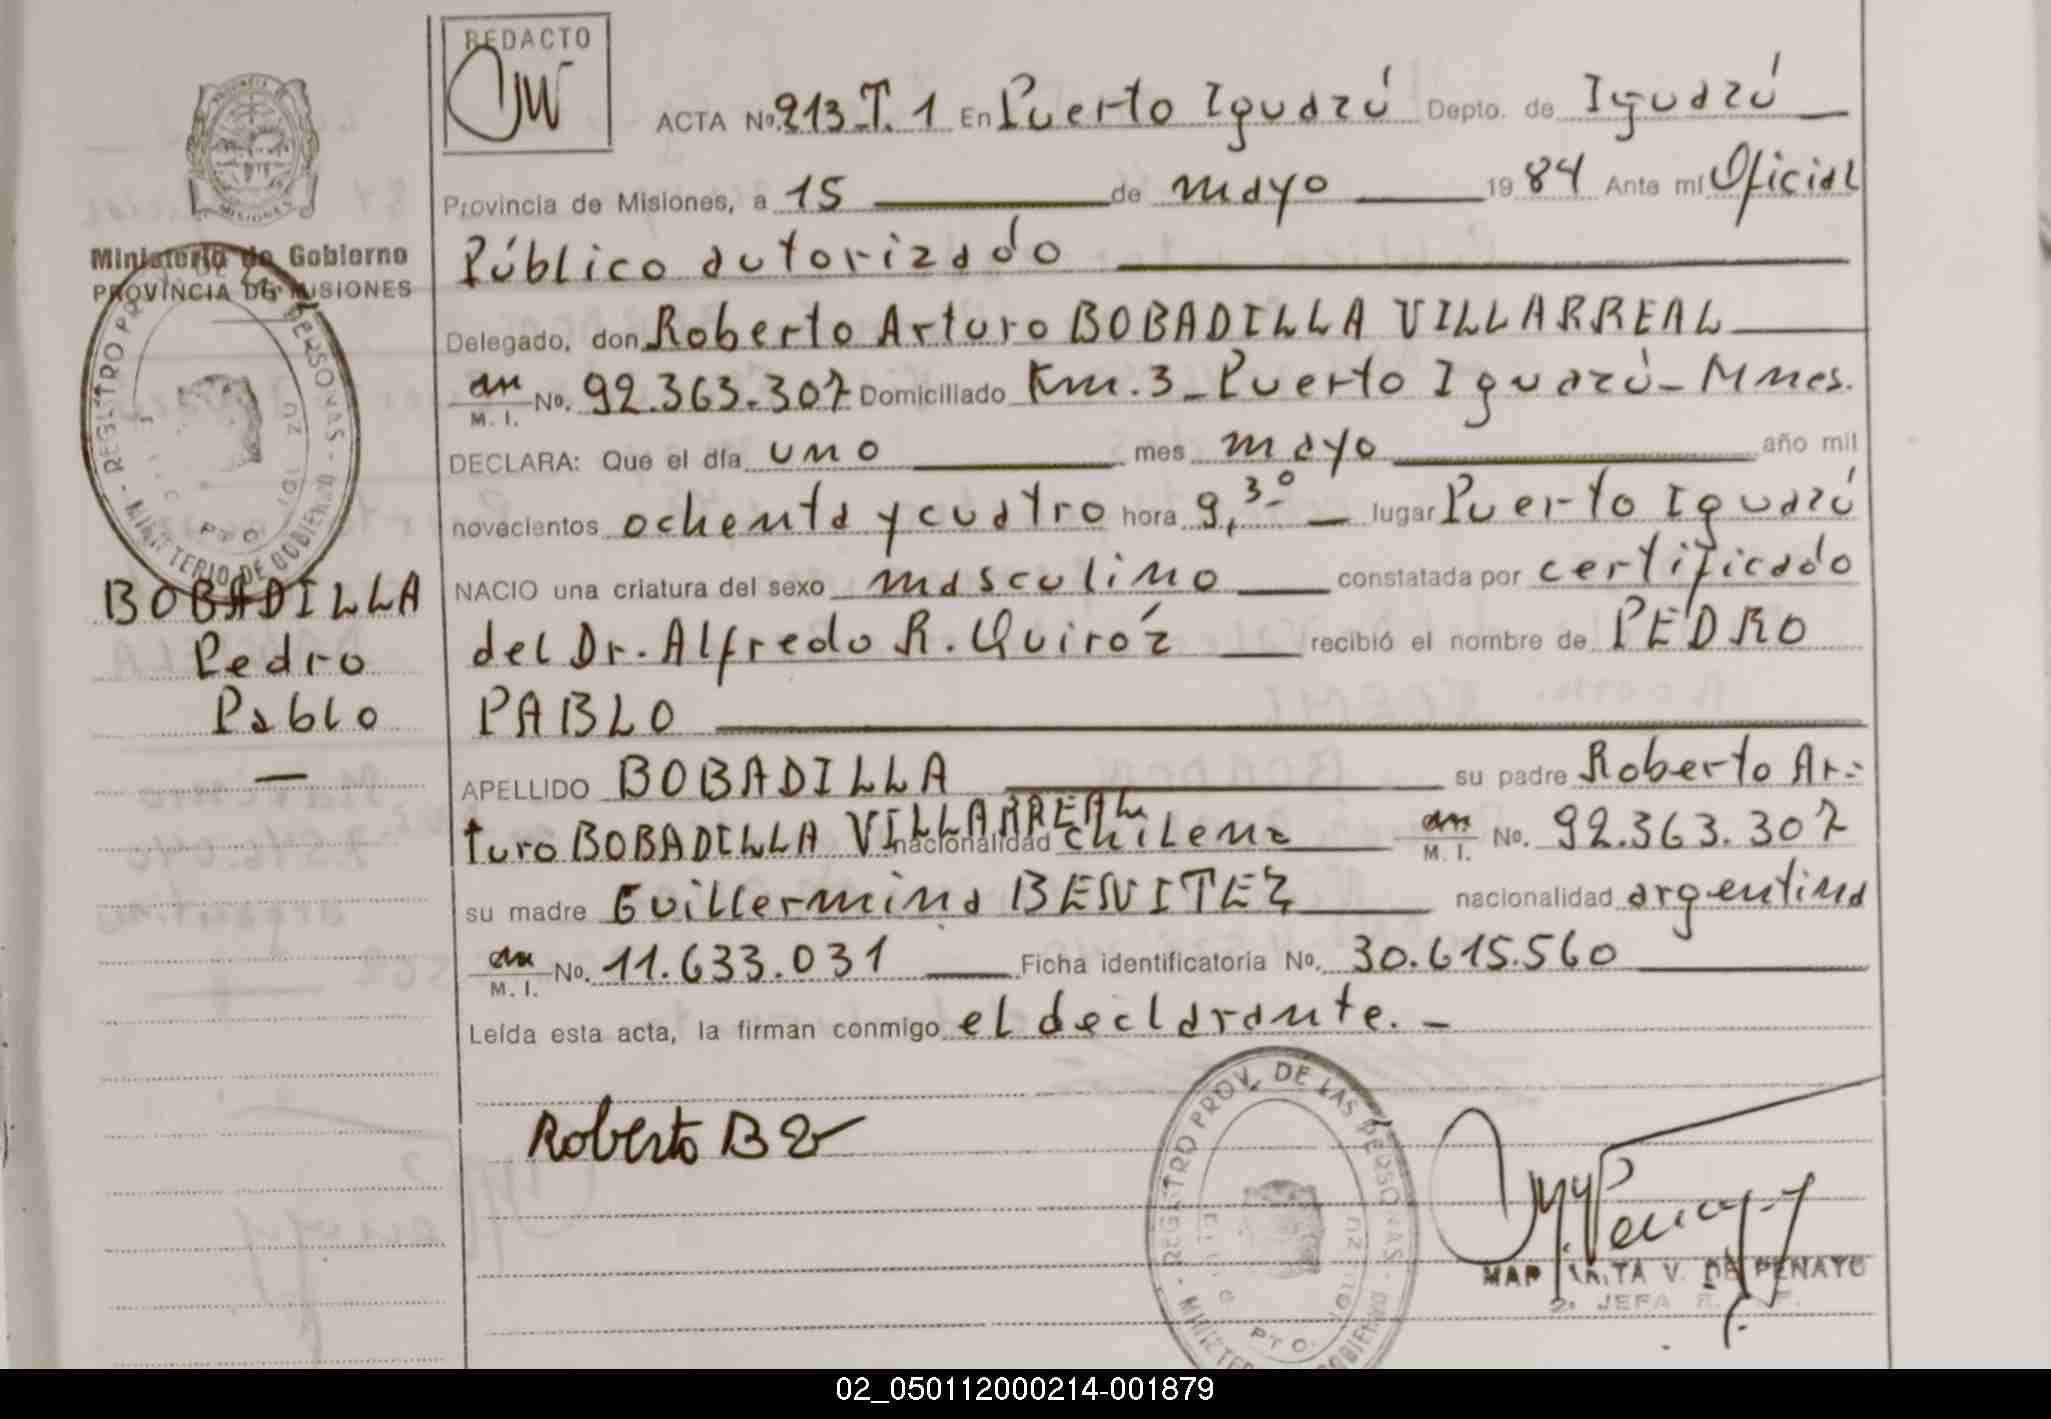 REDACTO
ACTA Nº. 213 T. 1 En Puerto Iguazú Depto. de Iguazú
Provincia de Misiones, a 15 de mayo 1984 Ante mí Oficial
Público autorizado
Delegado, don Roberto Arturo BOBADILLA VILLARREAL
M. I. No. 92.363.307 Domiciliado Km. 3 - Puerto Iguazú - Mnes.
DECLARA: Que el día uno mes mayo año mil
novecientos ochenta y cuatro hora 9,30 lugar Puerto Iguazú
NACIO una criatura del sexo masculino constatada por certificado
del Dr. Alfredo R. Quiróz recibió el nombre de PEDRO
PABLO
APELLIDO BOBADILLA su padre Roberto Ar-
turo BOBADILLA VILLARREAL nacionalidad chilena M. I. No. 92.363.307
su madre Guillermina BENITEZ nacionalidad argentina
M. I. No. 11.633.031 Ficha identificatoria No. 30.615.560
Leída esta acta, la firman conmigo el declarante. -
Ministerio de Gobierno
PROVINCIA DE MISIONES
BOBADILLA
Pedro
Pablo
Roberto B
REGISTRO PROV. DE LAS PERSONAS
V. DE PENAYO
2a JEFA
02_050112000214-001879